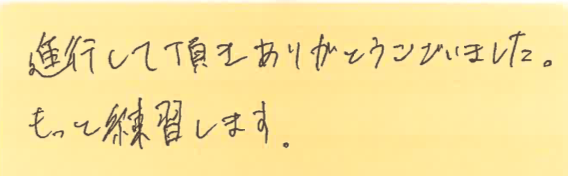 進行して頂きありがとうございました。
もって練習します。